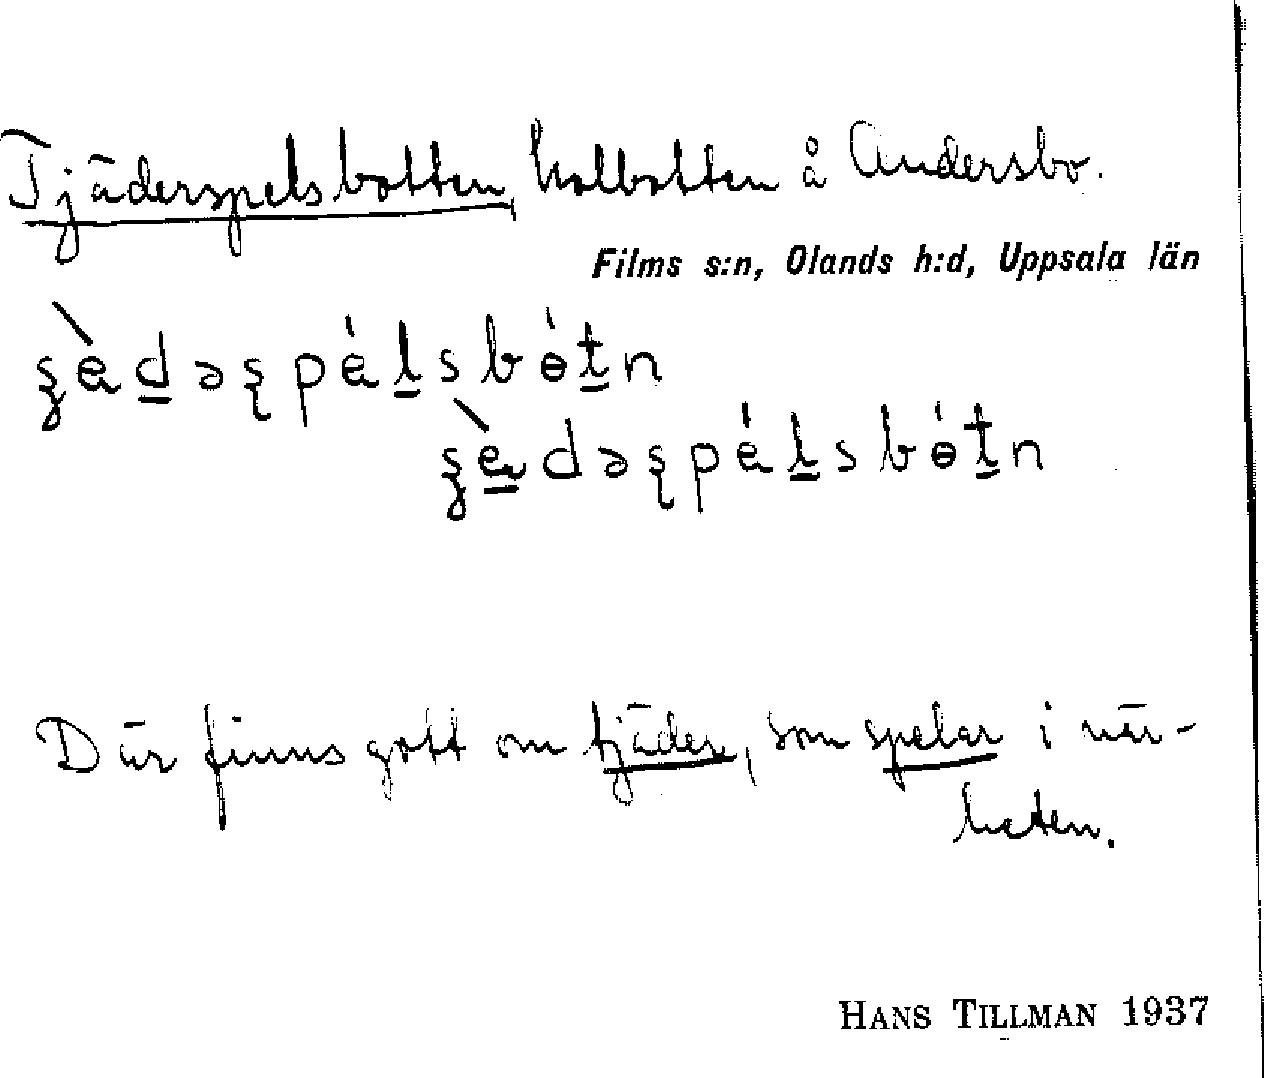 Tjäderspelsbotten, kolbotten å Andersbo.
Films s:n, Olands h:d, Uppsala län
Där finns gott om tjäder, som spelar i när-
heten.
HANS TILLMAN 1937